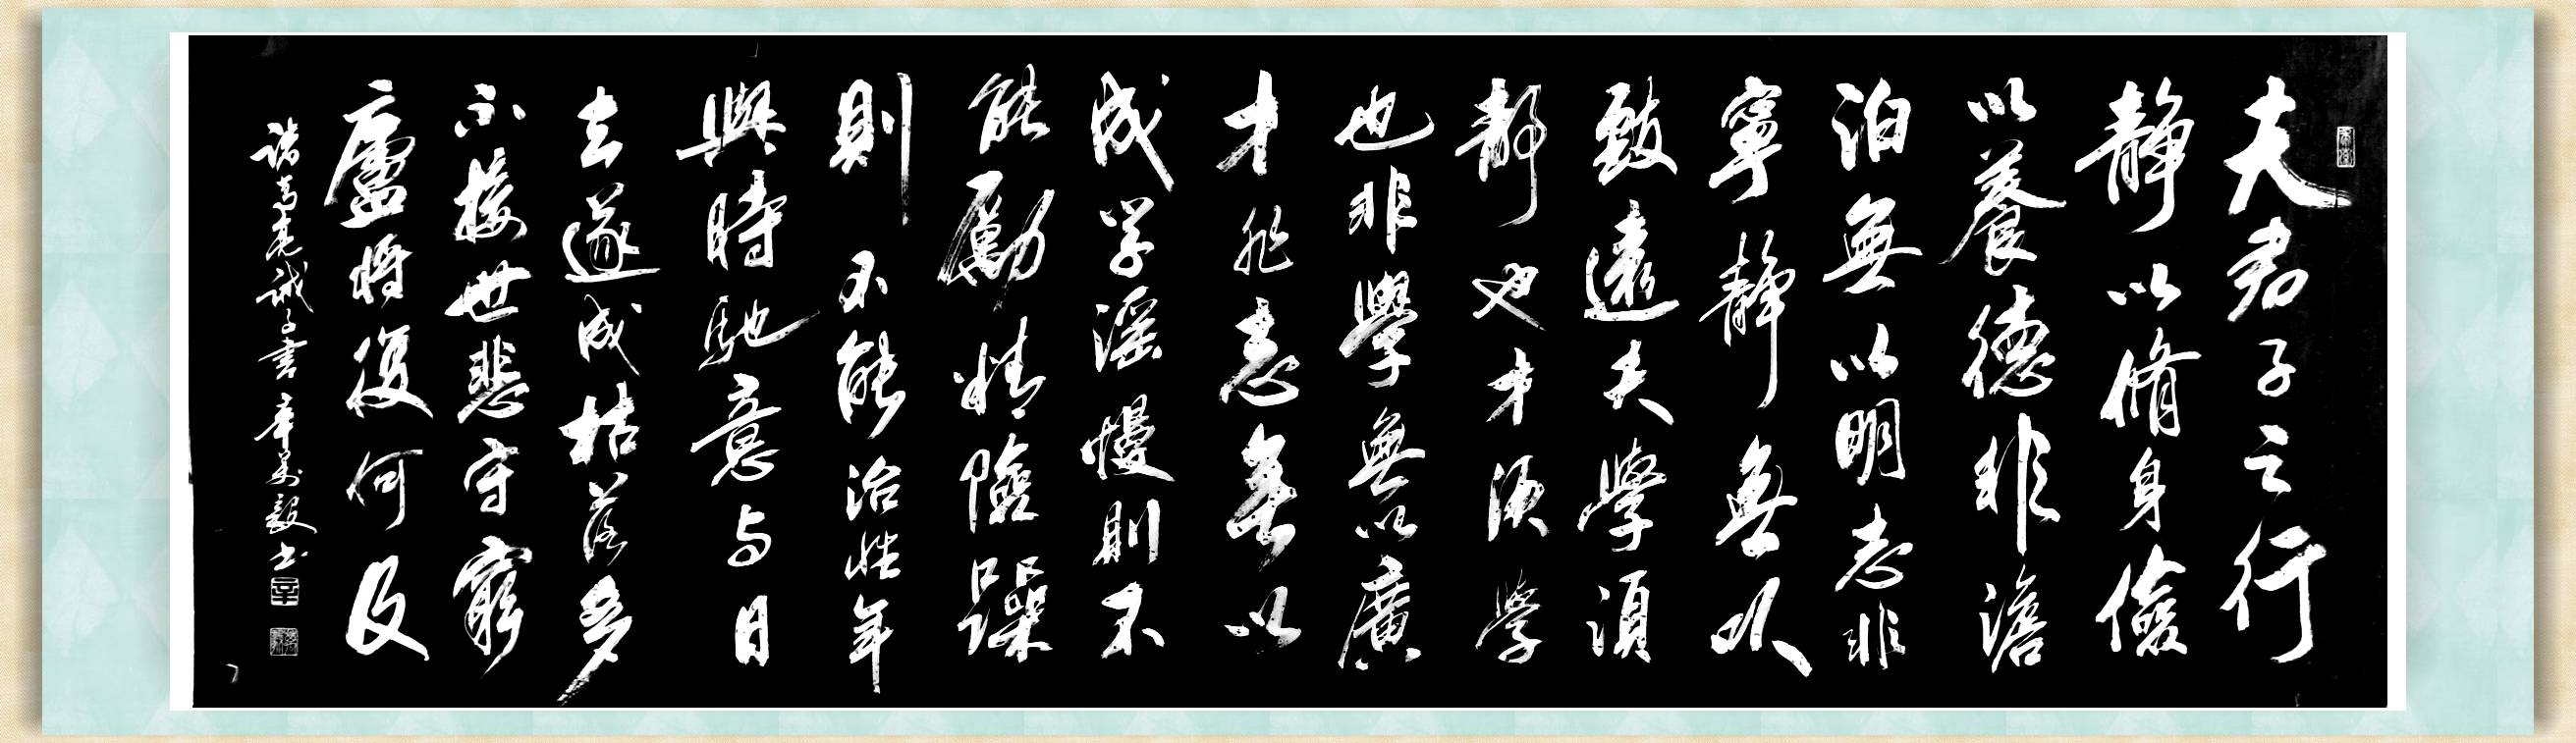 夫君子之行
静以脩身儉
以養德非澹
泊無以明志非
寧静無以
致遠夫學須
静也才須学
也非學無以廣
才非志無以
成学滛慢則不
能勵精險躁
則不能治性年
與時馳意与日
去遂成枯落多
不接世悲守窮
廬將復何及
诸葛亮诫子書